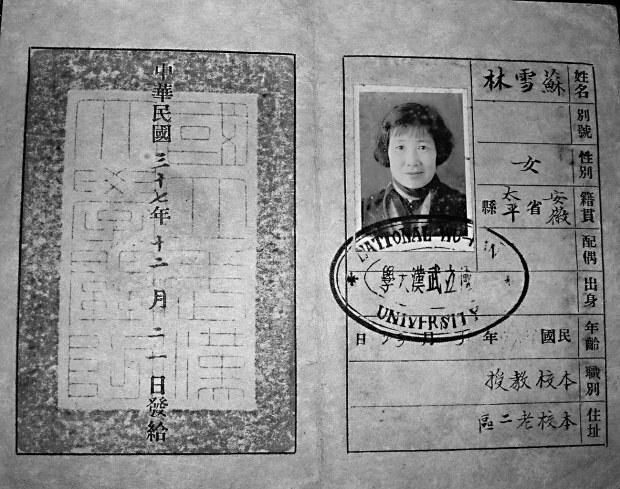 姓名 蘇雪林
別號
性別 女
籍貫 安徽省太平縣
配偶
出身
年齡 民國 年 月 日
職別 本校教授
住址 本校老二區
NATIONAL WU
立武漢大學
UNIVERSITY
中華民國三十七年十二月二一日發給